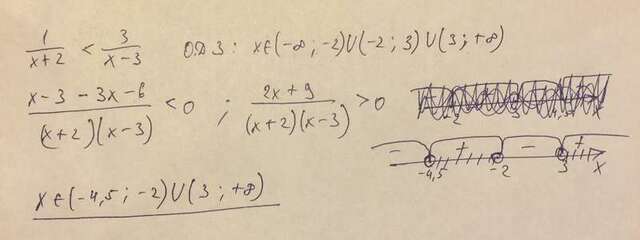 1/(x+2) < 3/(x-3)   О.Д.З: x∈(-∞; -2)∪(-2; 3)∪(3; +∞)
(x-3-3x-6)/((x+2)(x-3)) < 0 ; (2x+9)/((x+2)(x-3)) > 0
- + - +
-4,5 -2 3 x
x∈(-4,5; -2)∪(3; +∞)